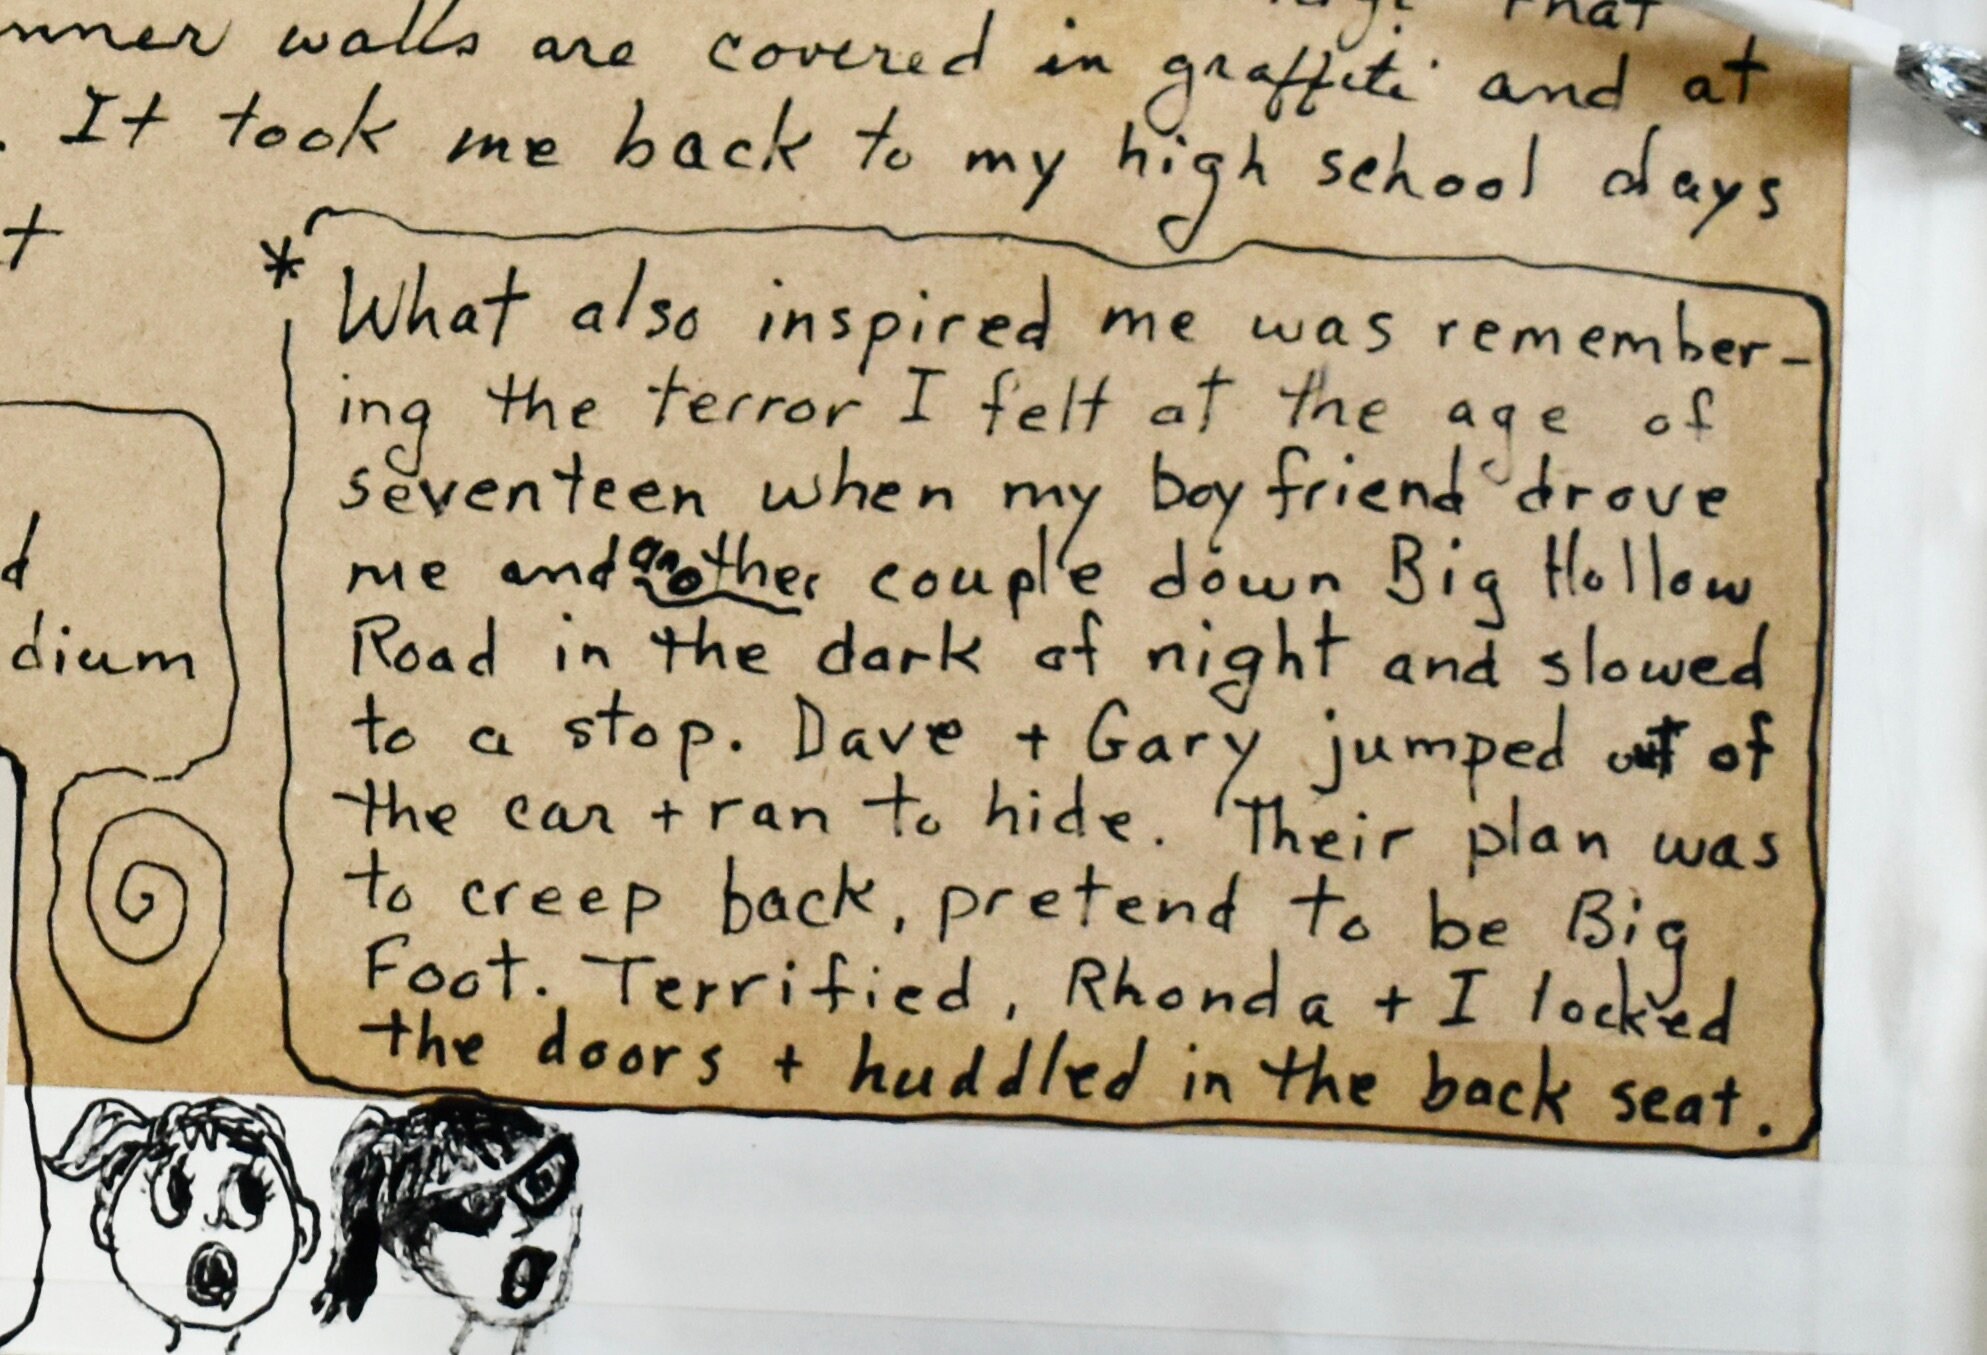 that
walls are covered in graffiti and at
. It took me back to my high school days
* What also inspired me was remember-
ing the terror I felt at the age of
seventeen when my boyfriend drove
me and another couple down Big Hollow
Road in the dark of night and slowed
to a stop. Dave + Gary jumped out of
the car + ran to hide. Their plan was
to creep back, pretend to be Big
Foot. Terrified, Rhonda + I locked
the doors + huddled in the back seat.
t
d
dium